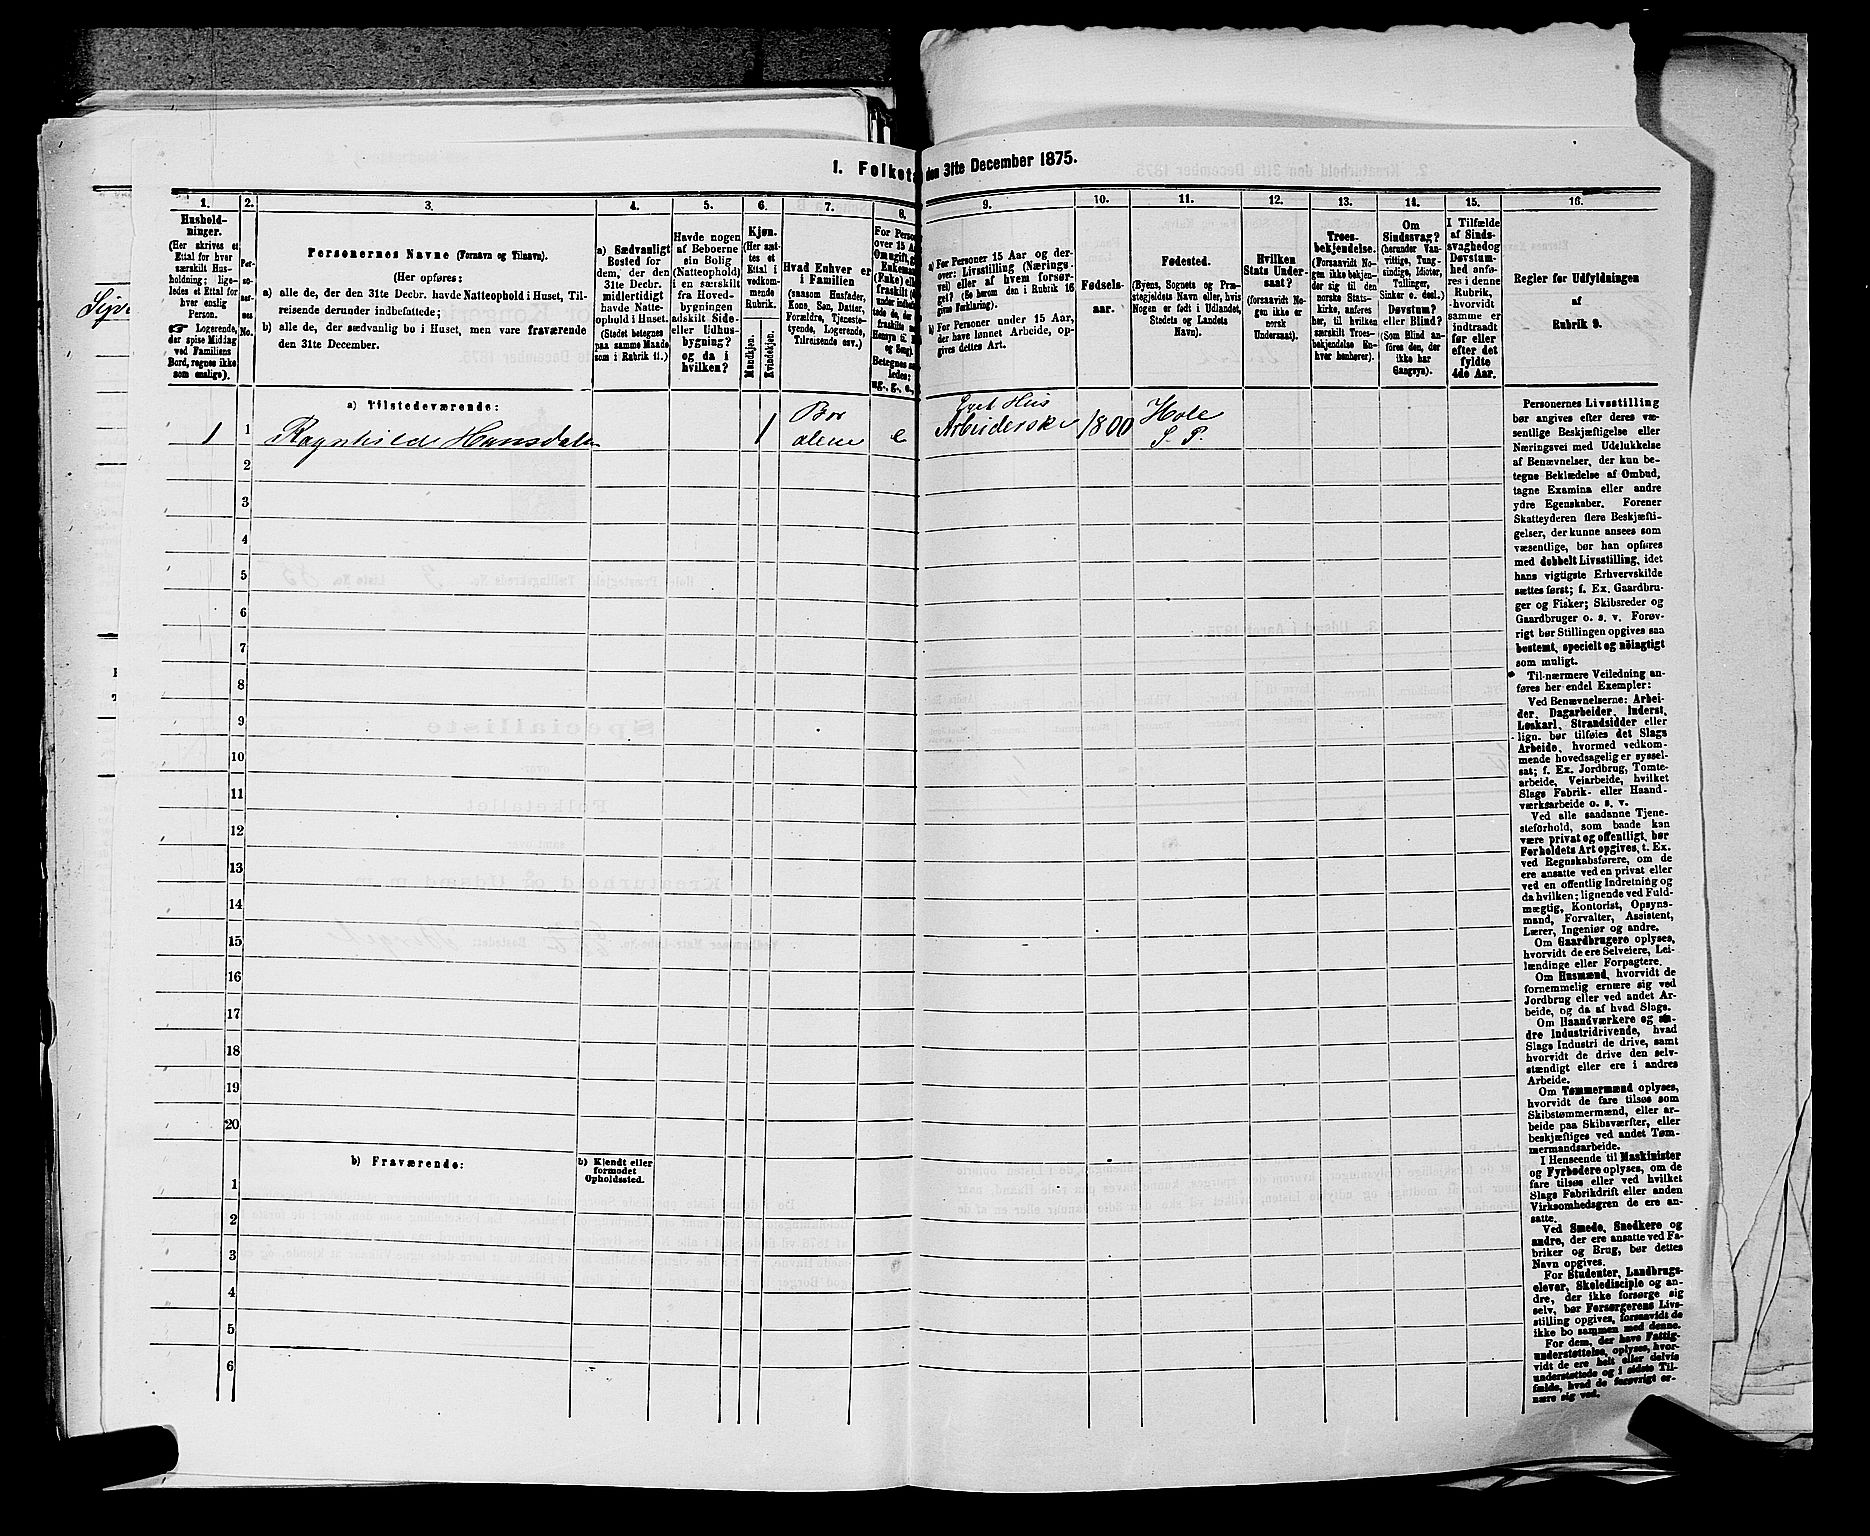 1. Folketa
den 31te December 1875.
1.
2.
3.
4.
5.
6.
7.
8.
9.
10.
11.
12.
13.
14.
15.
16.
Hushold-
ninger.
(Her skrives et
Ettal for hver
særskilt Hus-
holdning; lige-
ledes et Ettal for
hver enslig
Person.
Logerende,
der spise Middag
ved Familiens
Bord, regnes ikke
som enslige).
Per-
so-
ner-
nes
No.
Personernes Navne (Fornavn og Tilnavn).
(Her opføres:
a) alle de, der den 31te Decbr. havde Natteophold i Huset, Til-
reisende derunder indbefattede;
b) alle de, der sædvanlig bo i Huset, men vare fraværende
den 31te December.
a) Sædvanligt
Bosted for
dem, der den
31te Decbr.
midlertidigt
havde Natte-
ophold i Huset.
(Stedet betegnes
paa samme Maade
som i Rubrik 11.)
Havde nogen
af Beboerne
sin Bolig
(Natteophold)
i en særskilt
fra Hoved-
bygningen
adskilt Side-
eller Udhus-
bygning?
og da i
hvilken?
Kjøn.
(Her sæt-
tes et
Ettal i
vedkom-
mende
Rubrik.
Mandkjøn.
Kvindekjøn.
Hvad Enhver er
i Familien
(saasom Husfader,
Kone, Søn, Datter,
Forældre, Tjeneste-
tyende, Logerende,
Tilreisende osv.)
For Person
over 15 Aar
Om ugift, g
Enkeman
(Enke) eller
fraskilt (d
under indbefat-
tede de, der
fraskilte
Hensyn til B
og Seng).
Betegnes saa-
ledes:
ug., g., e.,
a) For Personer 15 Aar og der-
over: Livsstilling (Nærings-
vei) eller af hvem forsør-
get? (Se herom den i Rubrik 16
givne Forklaring).
b) For Personer under 15 Aar,
der have lønnet Arbeide, op-
gives dettes Art.
Fødsels-
aar.
Fødested.
(Byens, Sognets og Præ-
stegjeldets Navn eller, hvis
Nogen er født i Udlandet,
Stedets og Landets
Navn).
Hvilken
Stats Under-
saat?
(forsaavidt No-
gen ikke er
norsk
Undersaat).
Troes-
bekjendelse.
(Forsaavidt No-
gen ikke bekjen-
der sig til den
norske Stats-
kirke, anføres
her, til hvilken
særskilt Troes-
bekjendelse En-
hver henhører).
Om
Sindssvag?
(herunder Van-
vittige, Tung-
sindige, Idioter,
Tullinger,
Sinker o. desl.)
Døvstum?
eller Blind?
(Som Blind an-
føres den, der
ikke har
Gangsyn).
I Tilfælde
af Sinds-
svaghedog
Døvstum-
hed anfø-
res i denne
Rubrik,
hvorvidt
samme er
indtraadt
før eller
efter det
fyldte
4de Aar.
Regler for Udfyldningen
af
Rubrik 9.
a) Tilstedeværende:
1 1 Ragnhild Hansdatter 1 Bor alene e Eget Hus Arbeiderske 1800 Hole S. P.
2
3
4
5
6
7
8
9
10
11
12
13
14
15
16
17
18
19
20
b) Fraværende:
b) Kjendt eller
formodet
Opholdssted.
1
2
3
4
5
6
Personernes Livsstilling
bør angives efter deres væ-
sentlige Beskjæftigelse eller
Næringsvei med Udelukkelse
af Benævnelser, der kun be-
tegne Beklædelse af Ombud,
tagne Examina eller andre
ydre Egenskaber. Forener
Skatteyderen flere Beskjæfti-
gelser, der kunne ansees som
væsentlige, bør han opføres
med dobbelt Livsstilling, idet
hans vigtigste Erhvervskilde
sættes først; f. Ex. Gaardbru-
ger og Fisker; Skibsreder og
Gaardbruger o. s. v. Forøv-
rigt bør Stillingen opgives saa
bestemt, specielt og nöiagtigt
som muligt.
Til nærmere Veiledning an-
føres her endel Exempler:
Ved Benævnelserne: Arbei-
der, Dagarbeider, Inderst,
Løskarl, Strandsidder eller
lign. bør tilføies det Slags
Arbeide, hvormed vedkom-
mende hovedsagelig er syssel-
sat; f. Ex. Jordbrug, Tomte-
arbeide, Veiarbeide, hvilket
Slags Fabrik- eller Haand-
værksarbeide o. s. v.
Ved alle saadanne Tjene-
steforhold, som baade kan
være privat og offentligt, bør
Forholdets Art opgives, t. Ex.
ved Regnskabsførere, om de
ere ansatte ved en privat eller
ved en offentlig Indretning og
da hvilken; lignende ved Fuld-
mægtig, Kontorist, Opsyns-
mand, Forvalter, Assistent,
Lærer, Ingeniør og andre.
Om Gaardbrugere oplyses,
hvorvidt de ere Selveiere, Lei-
lændinge eller Forpagtere.
Om Husmænd, hvorvidt de
fornemmelig ernære sig ved
Jordbrug eller ved andet Ar-
beide, og da af hvad Slags.
Om Haandværkere og an-
dre Industridrivende, hvad
Slags Industri de drive, samt
hvorvidt de drive den selv-
stændigt eller ere i andres
Arbeide.
Om Tømmermænd oplyses,
hvorvidt de fare tilsøs som
Skibstømmermænd, eller ar-
beide paa Skibsværfter, eller
beskjæftiges ved andet Tøm-
mermandsarbeide.
I Henseende til Maskinister
og Fyrbødere oplyses, om de
fare tilsøs eller ved hvilket
Slags Fabrikdrift eller anden
Virksomhedsgren de ere an-
satte.
Ved Smede, Snedkere og
andre, der ere ansatte ved Fa-
briker og Brug, bør dettes
Navn opgives.
For Studenter, Landbrugs-
elever, Skoledisciple og an-
dre, der ikke forsørge sig
selv, bør Forsørgerens Livs-
stilling opgives, forsaavidt de
ikke bo sammen med denne.
For dem, der have Fattig-
understøttelse, oplyses, hvor-
vidt de ere helt eller delvis
understøttede og i sidste Til-
fælde, hvad de forøvrigt er-
nære sig ved.